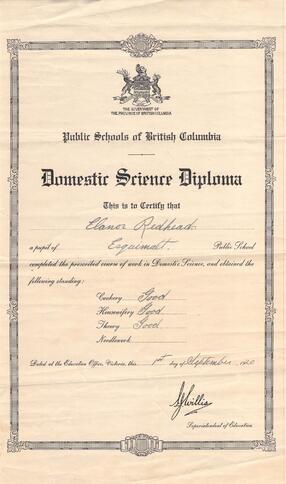 THE GOVERNMENT OF
THE PROVINCE OF BRITISH COLUMBIA
Public Schools of British Columbia
Domestic Science Diploma
This is to Certify that
Elanor Redhead
a pupil of Esquimalt Public School
completed the prescribed course of work in Domestic Science, and obtained the
following standing:
Cookery Good
Housewifery Good
Theory Good
Needlework
Dated at the Education Office, Victoria, this 1st day of September 1920
SJWillis
Superintendent of Education.